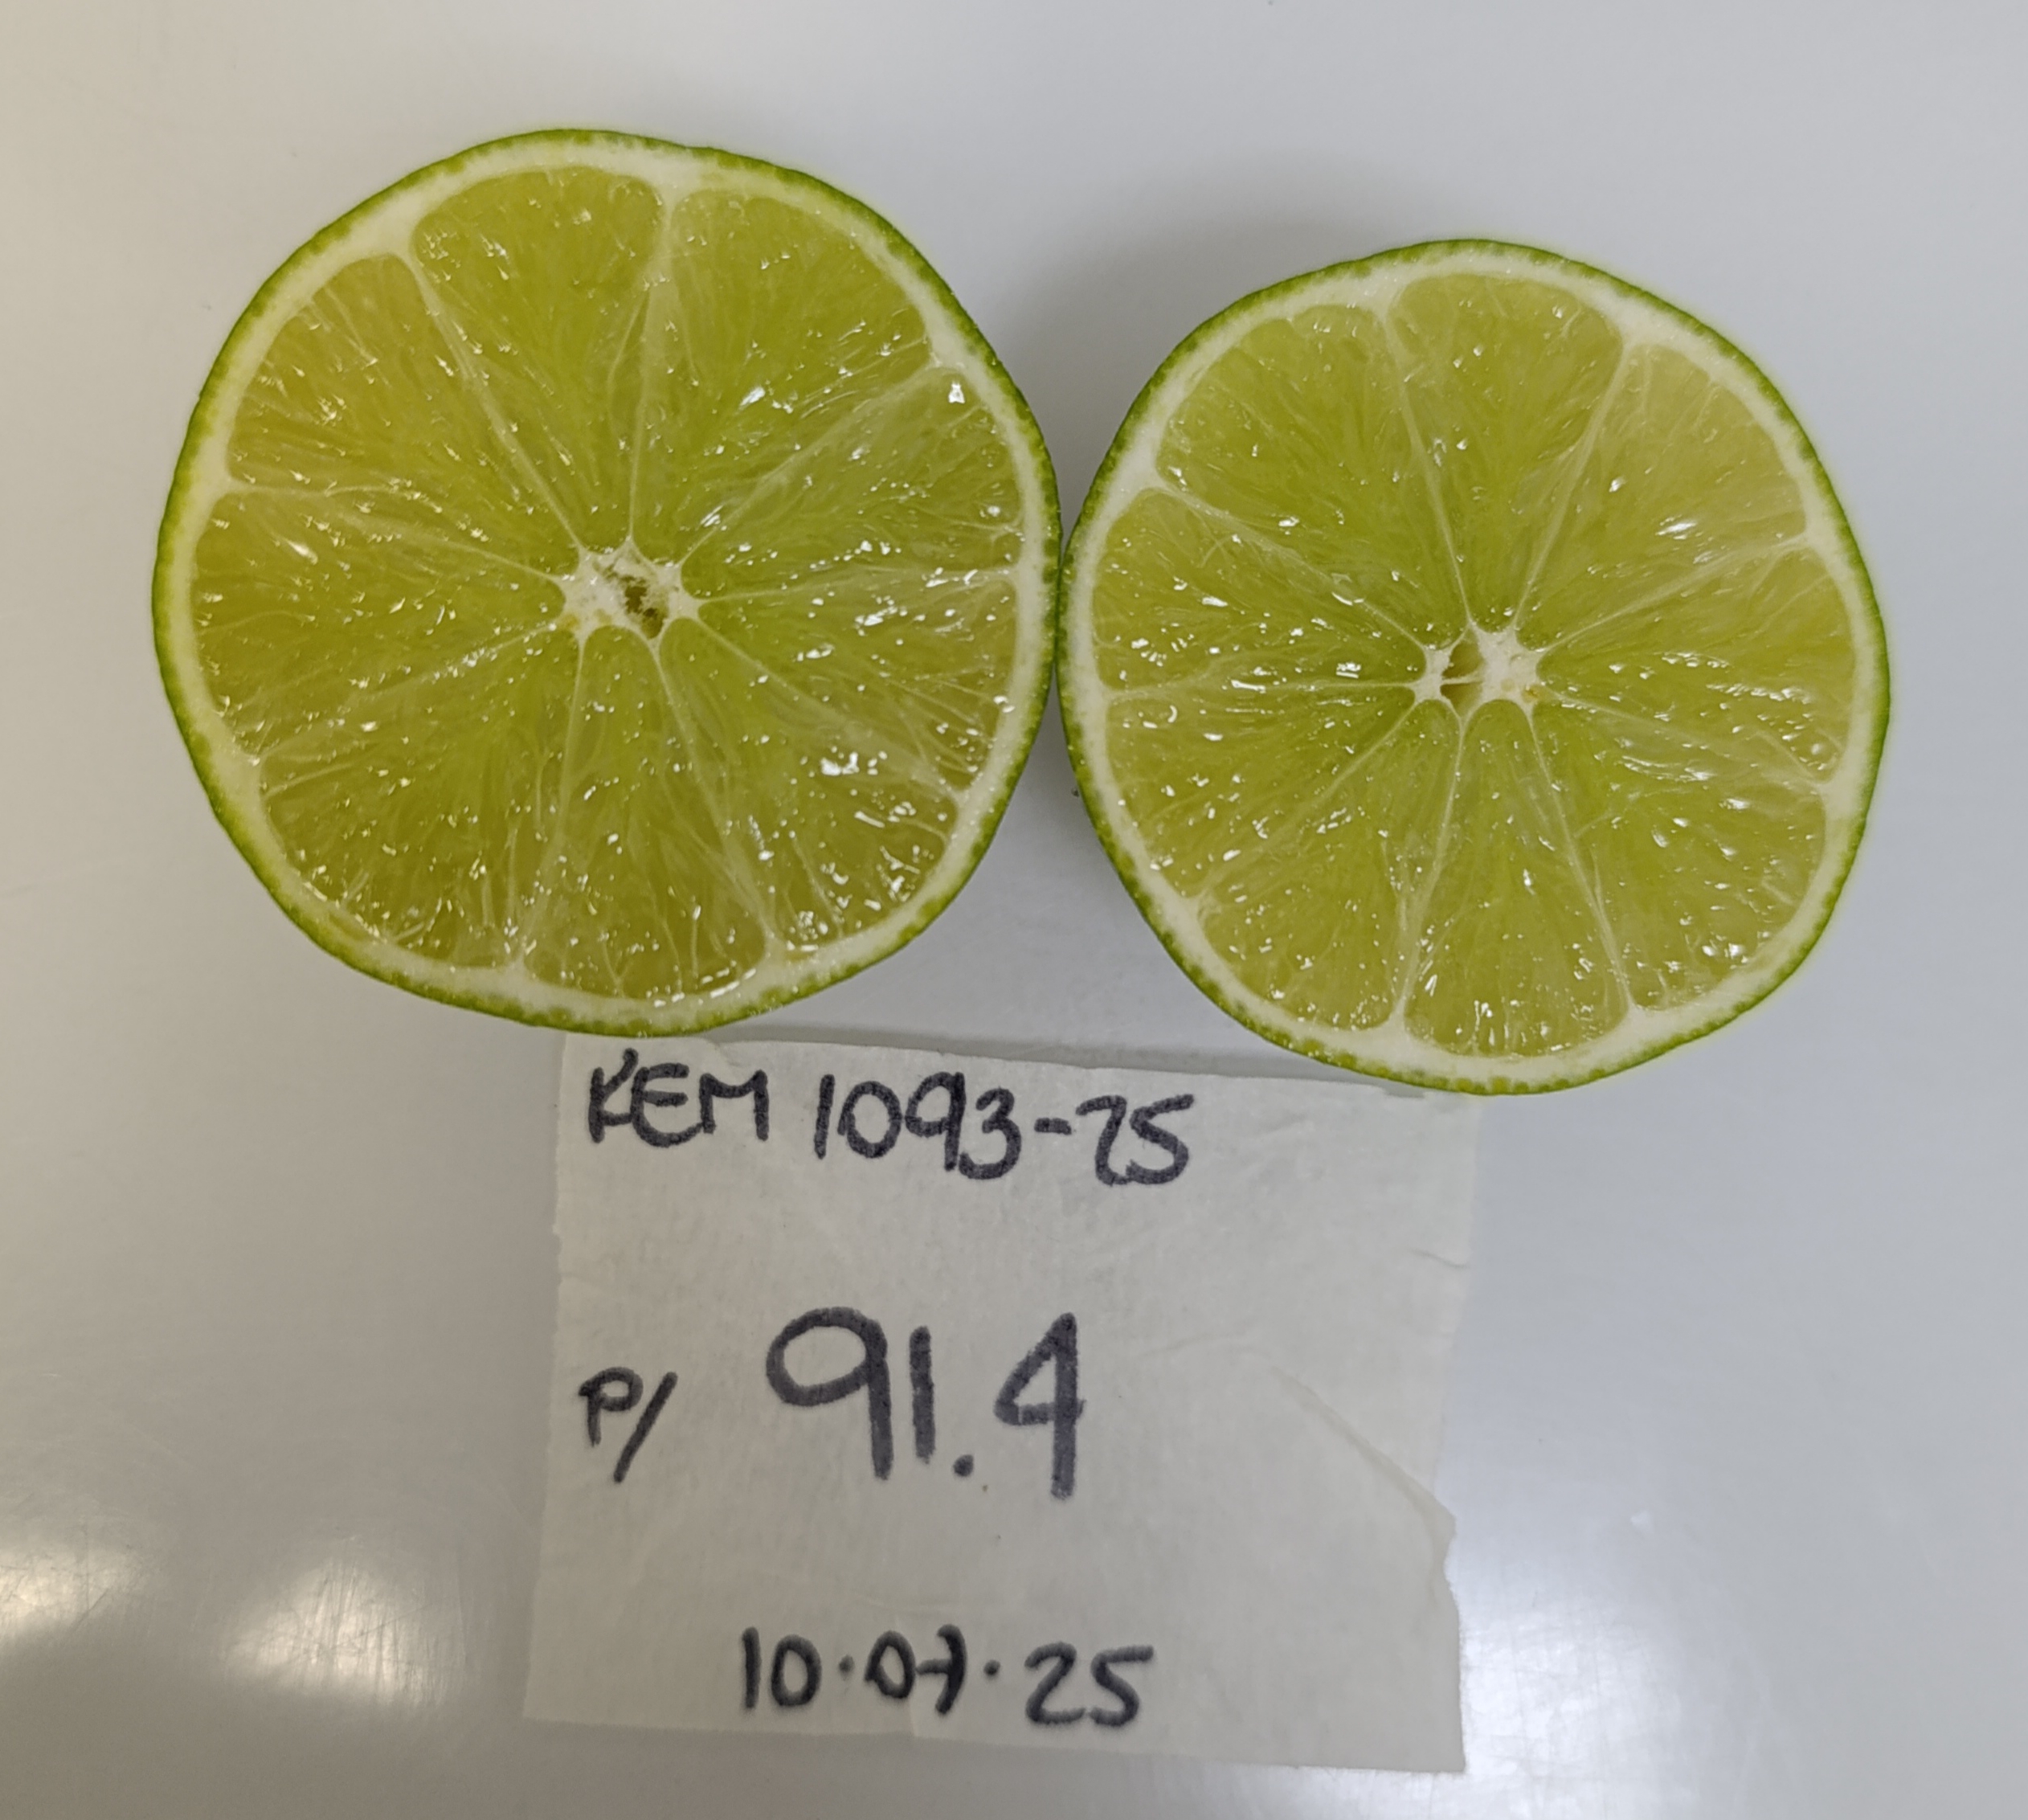 KEM 1093-25
P/ 91.4
10.07.25